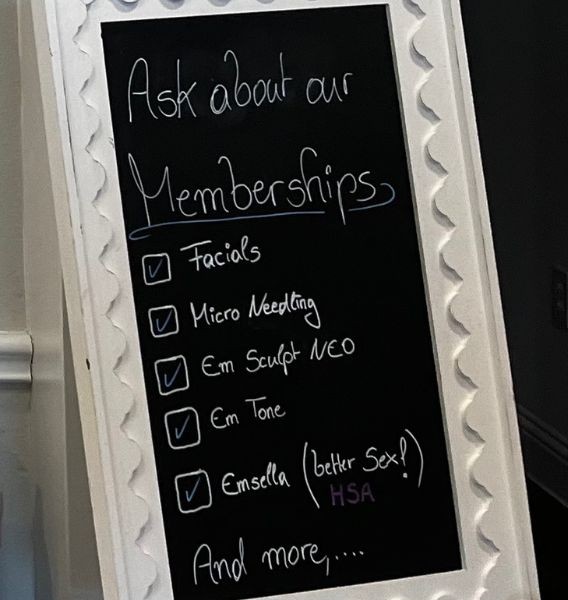 Ask about our
Memberships
Facials
Micro Needling
Em Sculpt NEO
Em Tone
Emsella (better Sex!)
HSA
And more,....